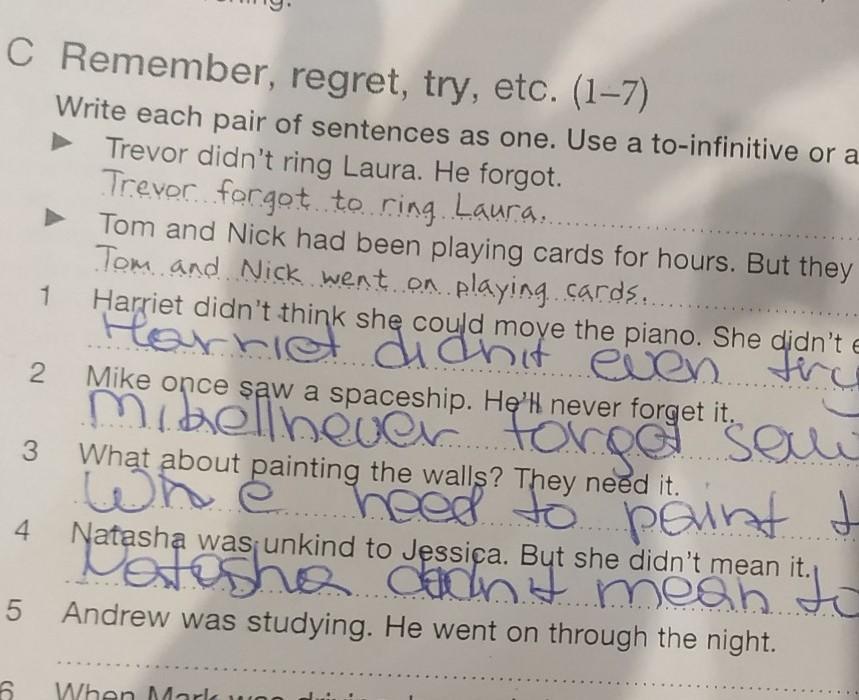 C Remember, regret, try, etc. (1–7)
Write each pair of sentences as one. Use a to-infinitive or a
► Trevor didn't ring Laura. He forgot.
Trevor forgot to ring Laura.
► Tom and Nick had been playing cards for hours. But they
Tom and Nick went on playing cards.
1 Harriet didn't think she could move the piano. She didn't e
Harriet didn't even try
2 Mike once saw a spaceship. He'll never forget it.
never forget
3 What about painting the walls? They need it.
need to paint t
4 Natasha was unkind to Jessica. But she didn't mean it.
Natasha didn't mean to
5 Andrew was studying. He went on through the night.
6 When Mark was